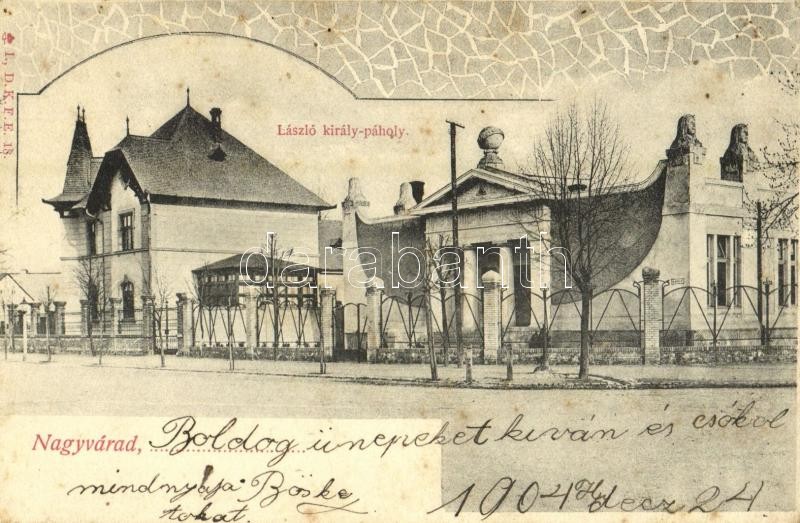 I., D. K. F. E. 18.
László király-páholy.
darabanth
Nagyvárad, Boldog ünepeket kiván és csókol
mindnyája Böske
tokat.
1904 decz 24